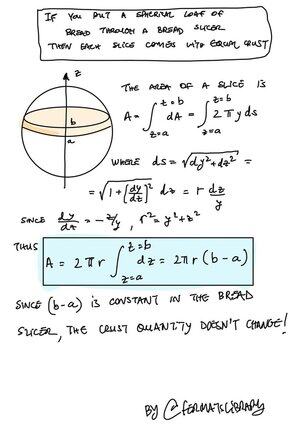 IF YOU PUT A SPHERICAL LOAF OF
BREAD THROUGH A BREAD SLICER
THEN EACH SLICE COMES WITH EQUAL CRUST
z
b
a
THE AREA OF A SLICE IS
A = ∫_{z=a}^{z=b} dA = ∫_{z=a}^{z=b} 2πy ds
WHERE ds = √(dy²+dz²) =
= √(1+[dy/dz]²) dz = r dz/y
SINCE dy/dz = -z/y, r² = y²+z²
THUS
A = 2πr ∫_{z=a}^{z=b} dz = 2πr(b-a)
SINCE (b-a) IS CONSTANT IN THE BREAD
SLICER, THE CRUST QUANTITY DOESN'T CHANGE!
BY @FERMATSLIBRARY